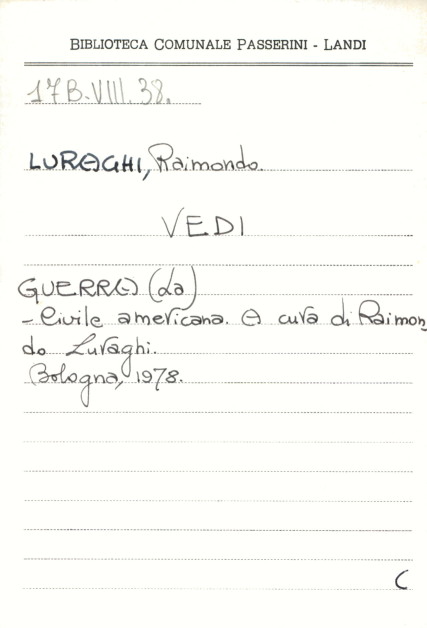 BIBLIOTECA COMUNALE PASSERINI - LANDI
17B.VIII.38.
LURAGHI, Raimondo.
VEDI
GUERRA (la)
- Civile americana. A cura di Raimon
do Luraghi.
Bologna, 1978.
C